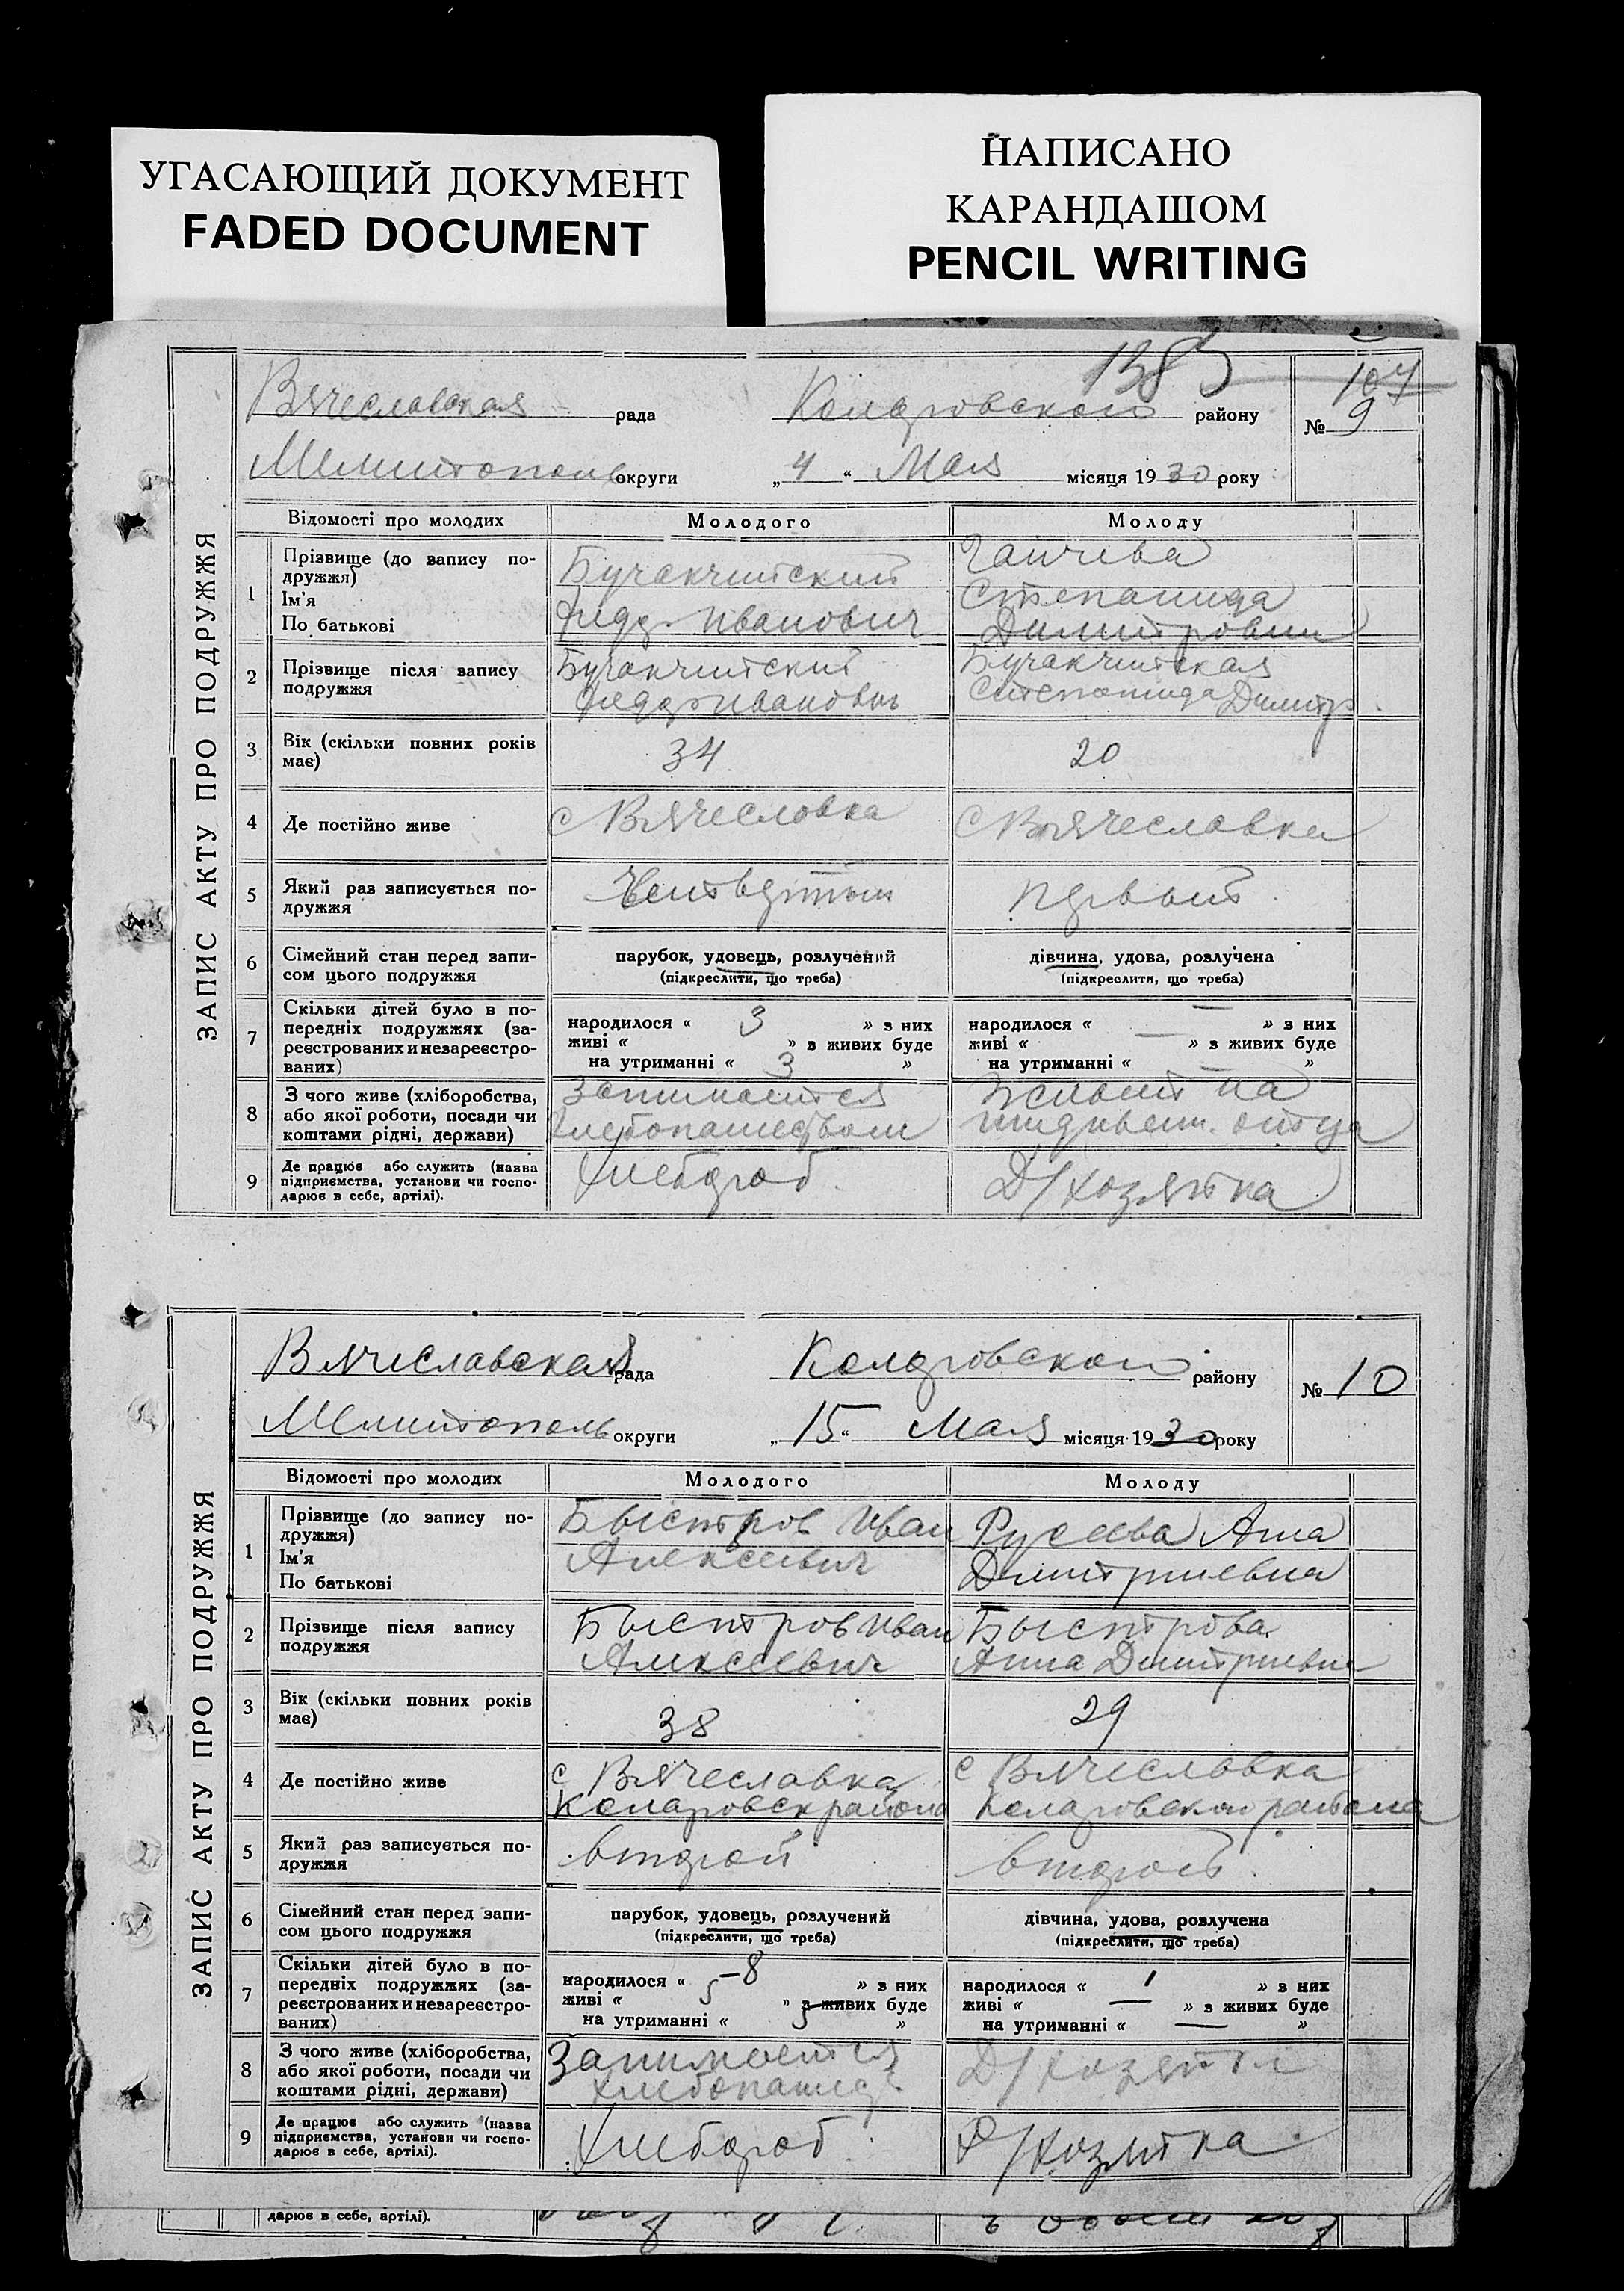 УГАСАЮЩИЙ ДОКУМЕНТ
FADED DOCUMENT
НАПИСАНО
КАРАНДАШОМ
PENCIL WRITING
1383
107
ЗАПИС АКТУ ПРО ПОДРУЖЖЯ
Вячеславская рада Коларовского району № 9
Мелитополь округи „4“ Мая місяця 1930 року
Відомості про молодих Молодого Молоду
1 Прізвище (до запису по-
дружжя)
Ім'я
По батькові
Бучакчийский
Федор Иванович
Степанида
2 Прізвище після запису
подружжя
Бучакчийский
Федор Иванович
Бучакчийская
Степанида Димитр
3 Вік (скільки повних років
має)
34
20
4 Де постійно живе
с Вячесловка
с Вячеславка
5 Який раз записується по-
дружжя
Четвертый
первый
6 Сімейний стан перед запи-
сом цього подружжя
парубок, удовець, розлучений
(підкреслити, що треба)
дівчина, удова, розлучена
(підкреслити, що треба)
7 Скільки дітей було в по-
передніх подружжях (за-
реєстрованих и незареєстро-
ваних)
народилося « 3 » з них
живі « » з живих буде
на утриманні « 3 »
народилося « — » з них
живі « — » з живих буде
на утриманні « — »
8 З чого живе (хліборобства,
або якої роботи, посади чи
коштами рідні, держави)
Занимается
хлебопашеством
на
иждивен. отца
9 Де працює або служить (назва
підприємства, установи чи госпо-
дарює в себе, артілі).
Хлебороб
Д/хозяйка
ЗАПИС АКТУ ПРО ПОДРУЖЖЯ
Вячиславская рада Коларовского району № 10
Мелитополь округи „15“ Мая місяця 1930 року
Відомості про молодих Молодого Молоду
1 Прізвище (до запису по-
дружжя)
Ім'я
По батькові
Быстров Иван
Алексеевич
Русева Анна
Димитриевна
2 Прізвище після запису
подружжя
Быстров Иван
Алексеевич
Быстрова
Анна Димитриевна
3 Вік (скільки повних років
має)
38
29
4 Де постійно живе
с Вячеславка
Коларовск района
с Вячеславка
Коларовского района
5 Який раз записується по-
дружжя
второй
второй
6 Сімейний стан перед запи-
сом цього подружжя
парубок, удовець, розлучений
(підкреслити, що треба)
дівчина, удова, розлучена
(підкреслити, що треба)
7 Скільки дітей було в по-
передніх подружжях (за-
реєстрованих и незареєстро-
ваних)
народилося « 8 » з них
живі « 5 » з живих буде
на утриманні « 5 »
народилося « 1 » з них
живі « — » з живих буде
на утриманні « — »
8 З чого живе (хліборобства,
або якої роботи, посади чи
коштами рідні, держави)
Занимается
хлебопашед
Д/хозяйка
9 Де працює або служить (назва
підприємства, установи чи госпо-
дарює в себе, артілі).
Хлебороб
Д/хозяйка
дарює в себе, артілі).